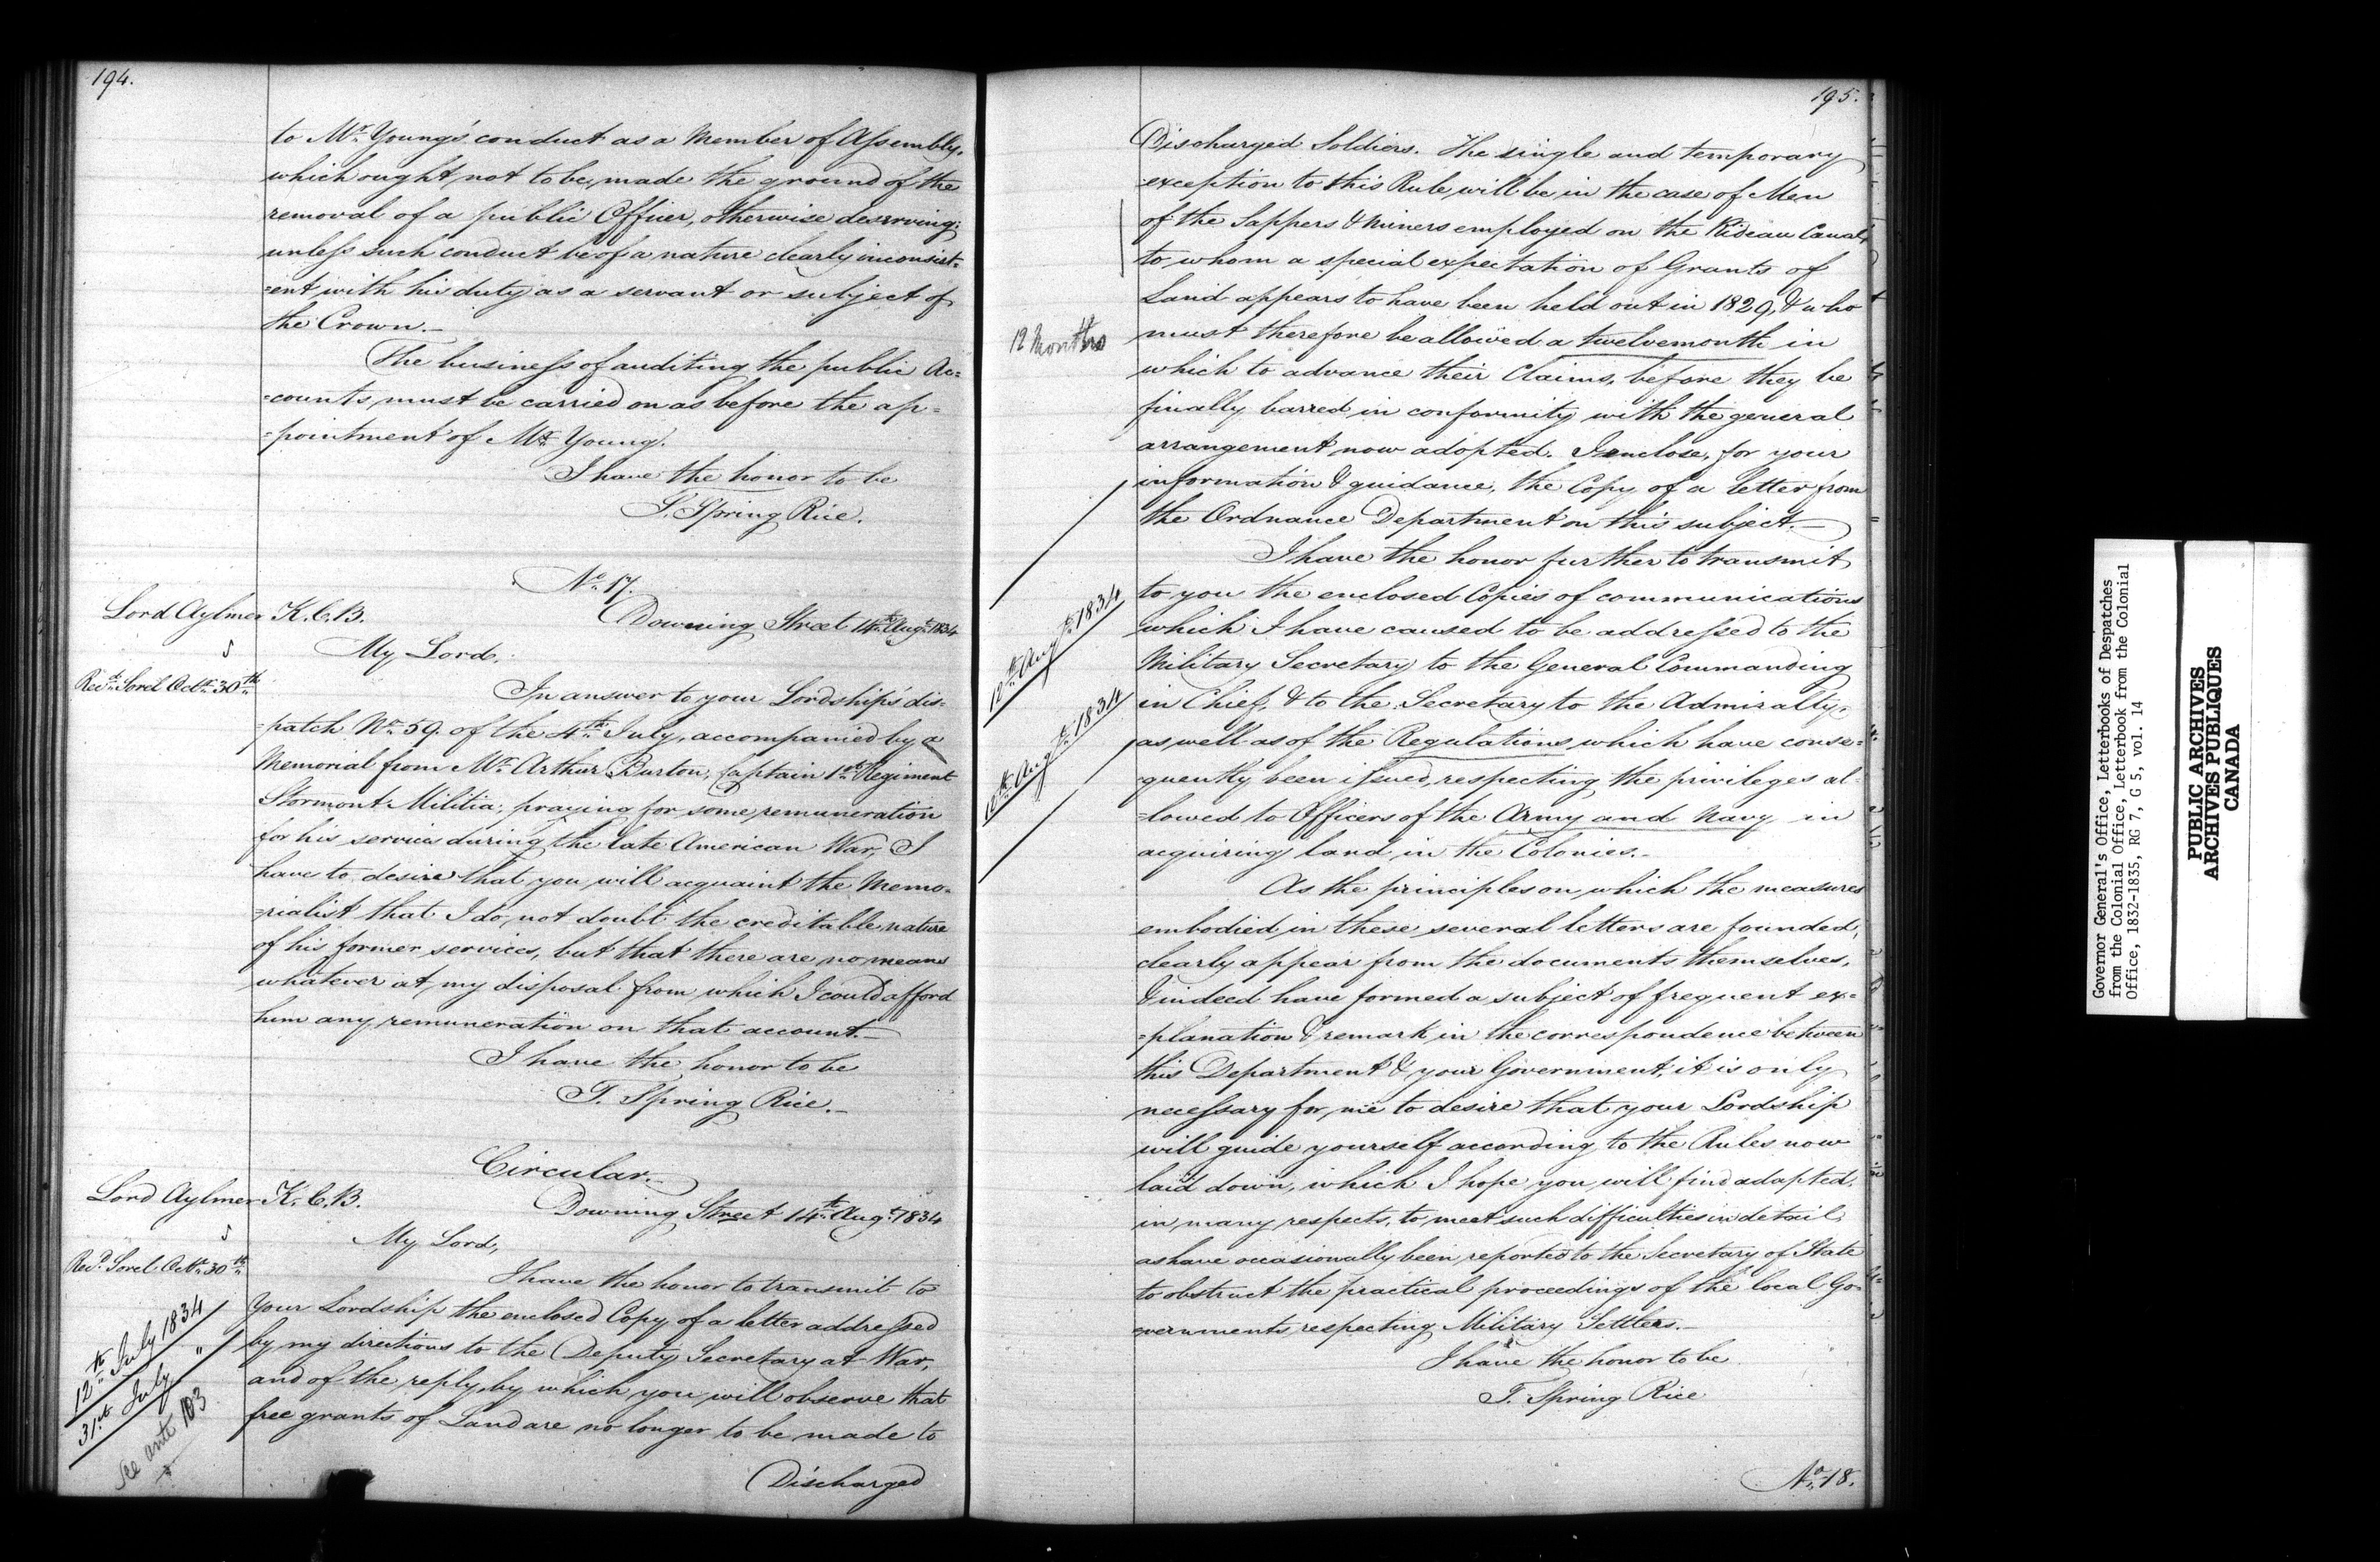 194.
to Mr. Young's conduct as a Member of Assembly,
which ought not to be made the ground of the
removal of a public Officer, otherwise deserving;
unless such conduct be of a nature clearly inconsist=
=ent with his duty as a servant or subject of
the Crown.—
The business of auditing the public Ac=
=counts must be carried on as before the ap=
=pointment of Mr. Young.
I have the honor to be
T. Spring Rice.
No. 17.
Lord Aylmer K.C.B.
Downing Street 14th Augt. 1834
My Lord,
5
Recd. Sorel Octr. 30th
In answer to your Lordship's dis=
=patch No. 59. of the 4th July, accompanied by a
Memorial from Mr. Arthur Burton, Captain 1st Regiment
Stormont Militia, praying for some remuneration
for his services during the late American War, I
have to desire that you will acquaint the Memo=
=rialist that I do not doubt the creditable nature
of his former services, but that there are no means
whatever at my disposal from which I could afford
him any remuneration on that account.—
I have the honor to be
T. Spring Rice.—
Circular.—
Lord Aylmer K.C.B.
Downing Street 14th Augt. 1834
5
My Lord,
Recd. Sorel Octr. 30th
I have the honor to transmit to
Your Lordship the enclosed Copy of a letter addressed
12th July 1834
by my directions to the Deputy Secretary at War,
31st July "
and of the reply, by which you will observe that
See ante 103
free grants of Land are no longer to be made to
Discharged
195.
Discharged Soldiers. The single and temporary
exception to this Rule will be in the case of Men
of the Sappers & Miners employed on the Rideau Canal,
to whom a special expectation of Grants of
Land appears to have been held out in 1829, & who
12 Months
must therefore be allowed a twelvemonth in
which to advance their Claims, before they be
finally barred in conformity with the general
arrangement now adopted. I enclose, for your
information & guidance, the Copy of a letter from
the Ordnance Department on this subject.—
I have the honor further to transmit
12th Augt. 1834
to you the enclosed Copies of communications
which I have caused to be addressed to the
Military Secretary to the General Commanding
12th Augt. 1834
in Chief, & to the Secretary to the Admiralty,
as well as of the Regulations which have conse=
=quently been issued, respecting the privileges al=
=lowed to Officers of the Army and Navy in
acquiring land in the Colonies.—
As the principles on which the measures
embodied in these several letters are founded,
clearly appear from the documents themselves,
& indeed have formed a subject of frequent ex=
=planation & remark in the correspondence between
this Department & your Government, it is only
necessary for me to desire that your Lordship
will guide yourself according to the Rules now
laid down, which I hope you will find adapted,
in many respects, to meet such difficulties in detail,
as have occasionally been reported to the Secretary of State
to obstruct the practical proceedings of the local Go=
=vernments respecting Military Settlers.—
I have the honor to be
T. Spring Rice
No. 18.
Governor General's Office, Letterbooks of Despatches
from the Colonial Office, Letterbook from the Colonial
Office, 1832-1835, RG 7, G 5, vol. 14
PUBLIC ARCHIVES
ARCHIVES PUBLIQUES
CANADA